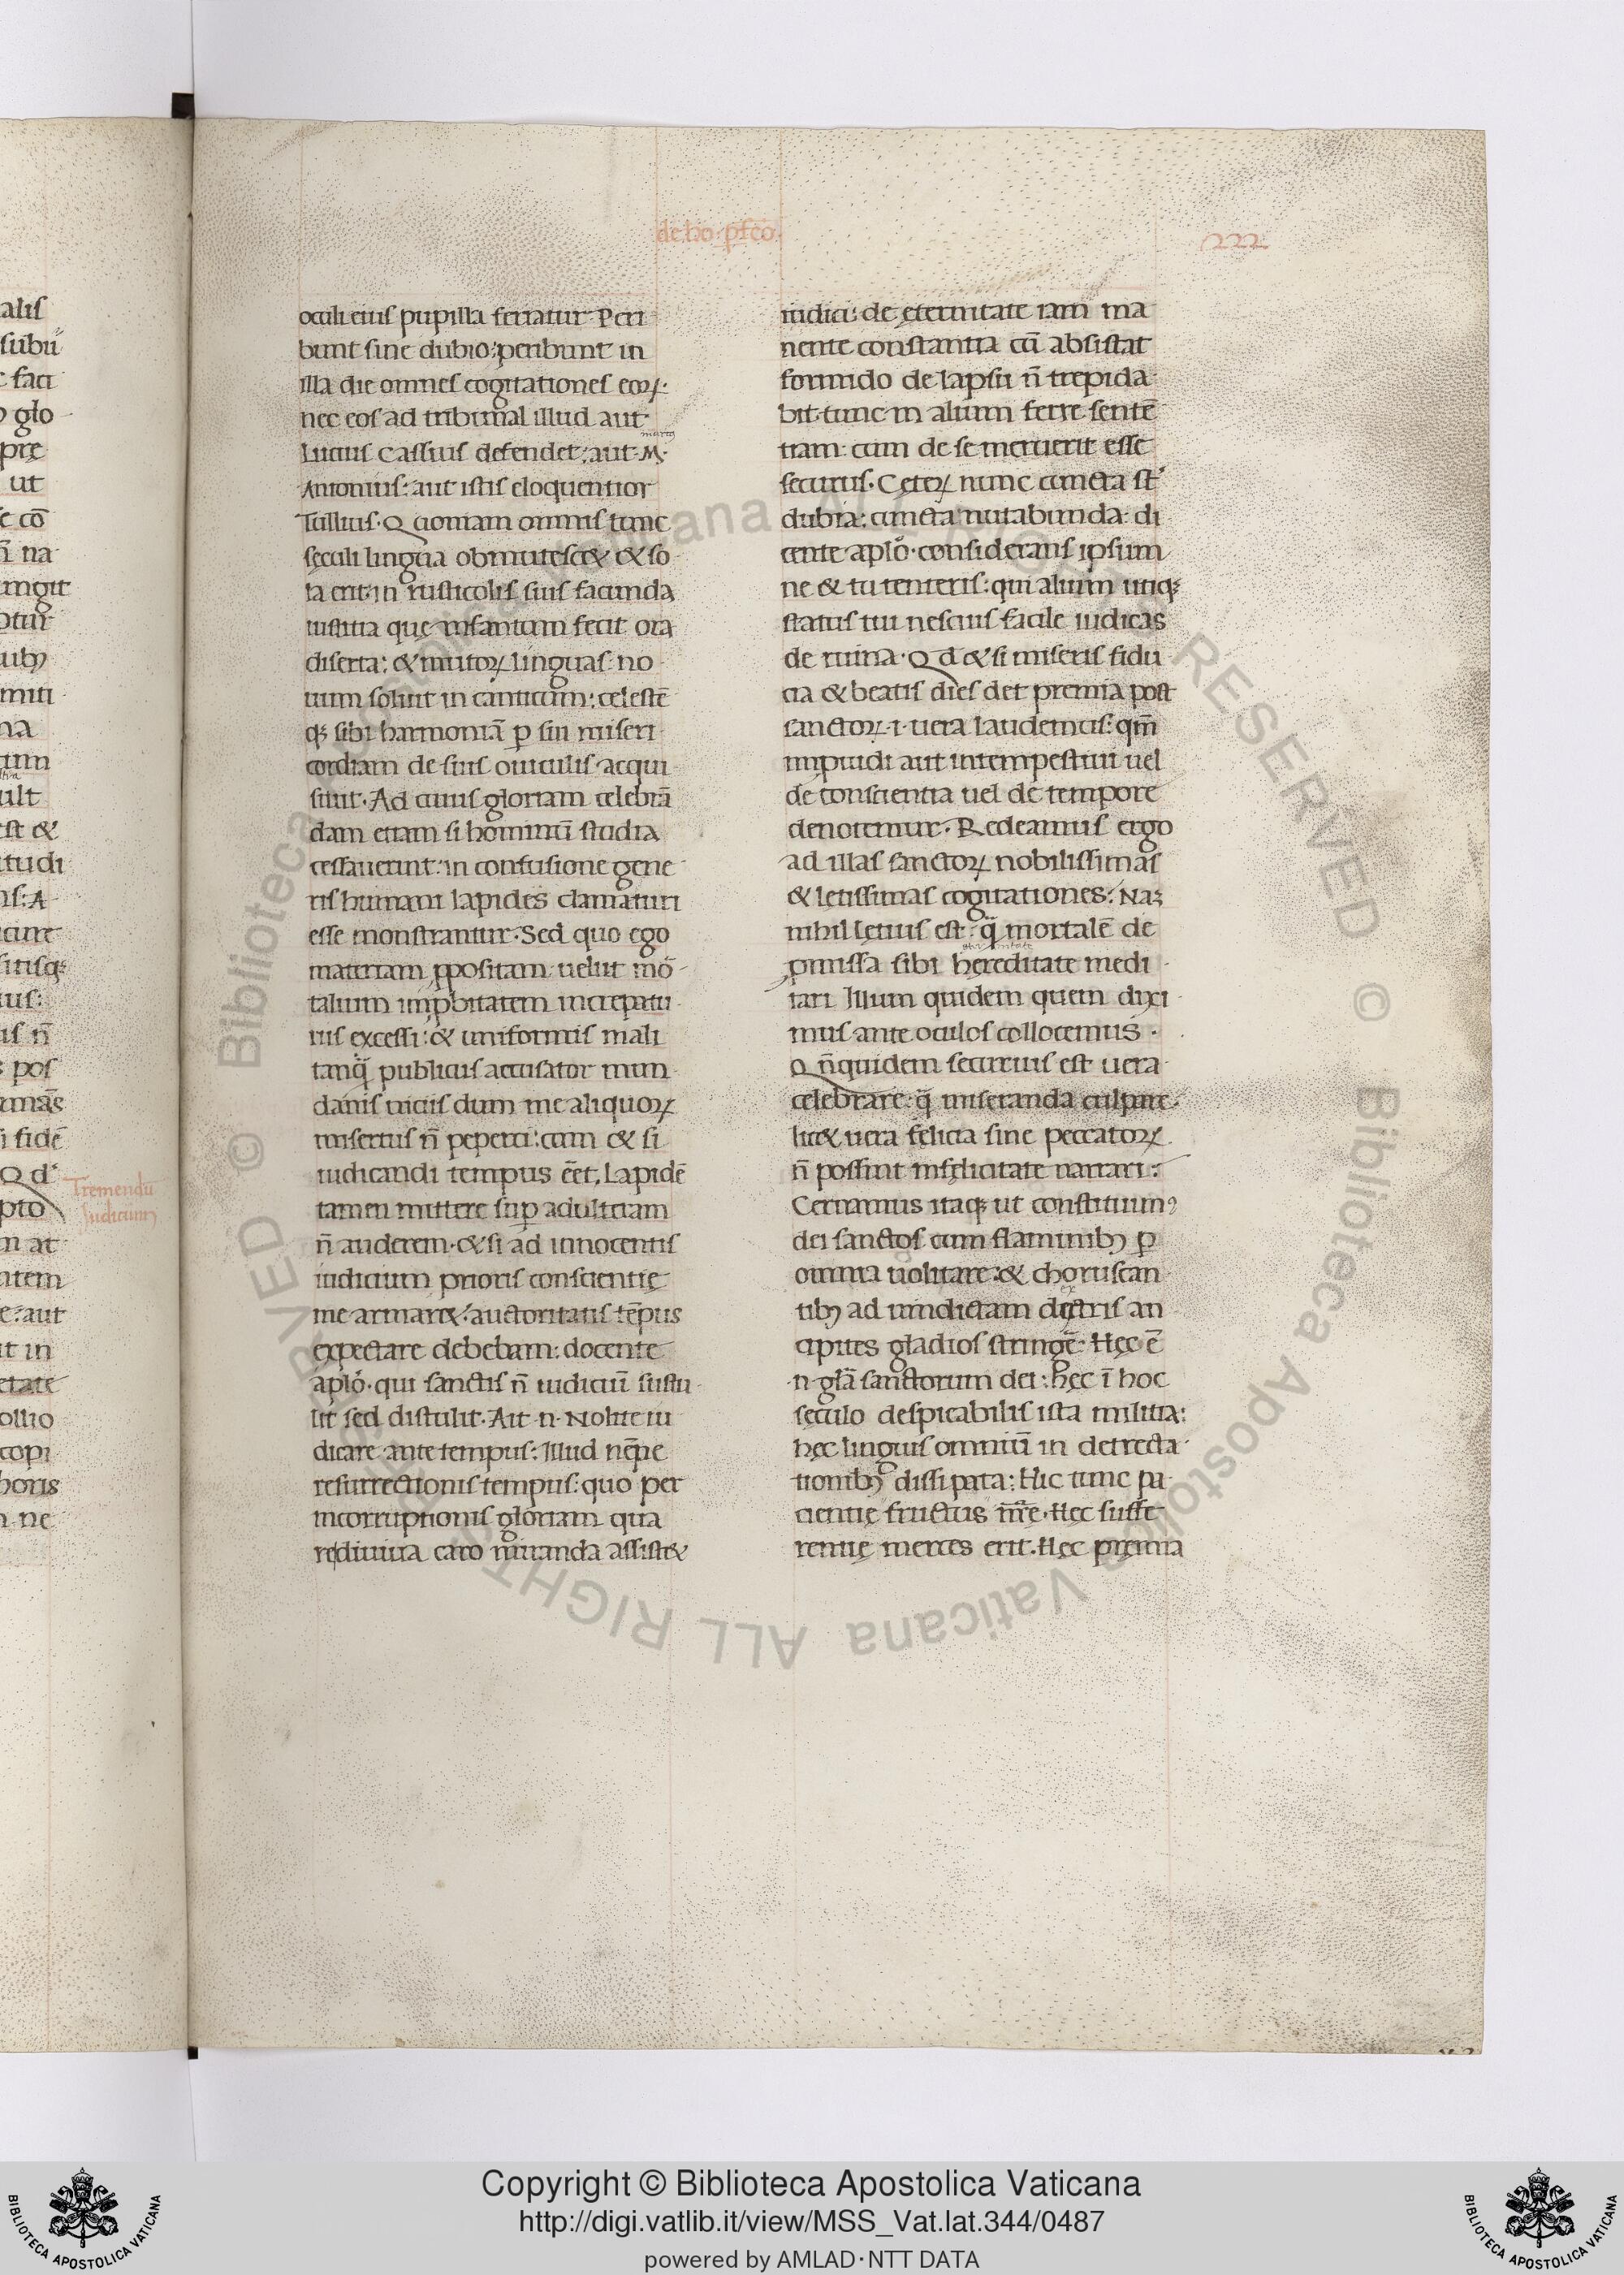 de ho. pfco.
222
oculi eius pupilla feriatur. Peri
bunt sine dubio: peribunt in
illa die omnes cogitationes eoꝝ.
nec eos ad tribunal illud aut
Lucius Cassius defendet: aut .M.
Antonius: aut istis eloquentior
Tullius. Quoniam omnis tunc
sęculi lingua obmutescet & so
la erit in rusticolis suis facunda
iustitia que infantium fecit ora
diserta: & mutoꝝ linguas: no
uum soluit in canticum: celestē
qꝫ sibi harmoniā ꝑ sui miseri
cordiam de suis ouiculis acqui
siuit. Ad cuius gloriam celebrā
dam etiam si hominū studia
cessauerint: in confusione gene
ris humani lapides clamaturi
esse monstrantur. Sed quo ego
materiam ꝓpositam uelut mō
talium imꝓbitatem increpatu
rus excessi: & uniformis mali
tanq̄ publicus accusator mun
danis uiciis dum me aliquoꝝ
misertus n̄ peperci: cum & si
iudicandi tempus eēt, lapidē
tamen mittere suꝑ adulteram
n̄ auderem. & si ad innocentis
iudicium prioris conscientię
me armaret: auctoritatis tēpus
expectare debebam: docente
aplo. qui sanctis n̄ iudiciū sustu
lit sed distulit. Ait .n. Nolite iu
dicare ante tempus: Illud nēpe
resurrectionis tempus: quo per
incorruptionis gloriam qua
rediuiua caro miranda assistet
iudici: de ęternitate iam ma
nente constantia cū absistat
formido de lapsu n̄ trepida
bit. tunc in alium ferre sentē
tiam. cum de se meruerit esse
securus. Ceteꝝ nunc cuncta st
dubia: cuncta nutabunda: di
cente aplo. considerans ipsum
ne & tu tenteris: qui alium utiqꝫ
status tui nescius facile iudicas
de ruina. Qd & si miseris fidu
cia & beatis dies det premia post
sanctoꝝ .i. uera laudemus: qm̄
impuidi aut intempestiui uel
de conscientia uel de tempore
denotemur. Redeamus ergo
ad illas sanctoꝝ nobilissimas
& lętissimas cogitationes. Naꝫ
nihil lętius est. q̄ mortalē de
pmissa sibi hereditate medi
tari. Illum quidem quem dixi
mus ante oculos collocemus.
Qn̄quidem securius est uera
celebrare. q̄ miseranda culpare.
licet uera felicia sine peccatoꝝ
n̄ possint infelicitate narrari:
Cernamus itaqꝫ ut constituimꝰ
dei sanctos cum flaminibꝫ ꝑ
omnia uolitare: & choruscan
tibꝫ ad uindictam dextris an
cipites gladios stringē. Hęc ē
.n. glā sanctorum dei: hęc ī hoc
sęculo despicabilis ista militia:
hęc linguis omniū in detrecta
tionibꝫ dissipata: Hic tunc pa
cientię fructus
Hęc suffe
rentię merces erit. Hęc pręmia
Tremendū
Iudicium
Copyright © Biblioteca Apostolica Vaticana
http://digi.vatlib.it/view/MSS_Vat.lat.344/0487
powered by AMLAD·NTT DATA